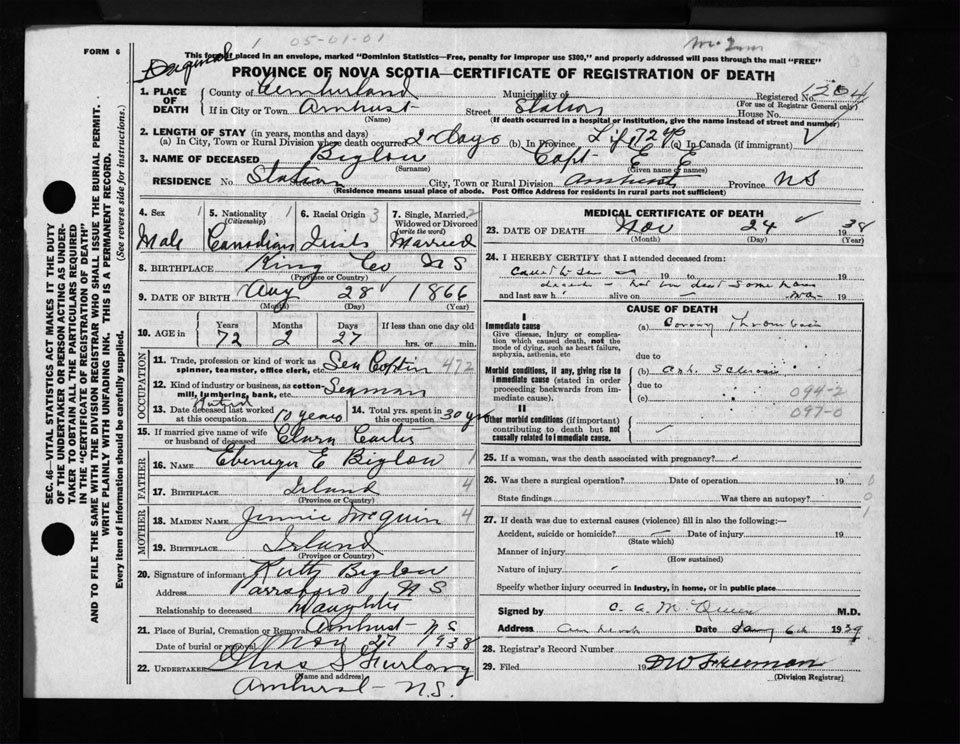 FORM 6
1 05-01-01
Original
This form if placed in an envelope, marked "Dominion Statistics—Free, penalty for improper use $300," and properly addressed will pass through the mail "FREE"
PROVINCE OF NOVA SCOTIA—CERTIFICATE OF REGISTRATION OF DEATH
1. PLACE OF DEATH County of Cumberland Municipality of Registered No. 1204
(For use of Registrar General only)
If in City or Town Amherst Street Station House No.
(Name) (If death occurred in a hospital or institution, give the name instead of street and number)
2. LENGTH OF STAY (in years, months and days)
(a) In City, Town or Rural Division where death occurred 2 days (b) In Province Life 72 yrs (c) In Canada (if immigrant)
3. NAME OF DECEASED Biglow Capt E E
(Surname) (Given name or names)
RESIDENCE No. Station City, Town or Rural Division Amherst Province NS
(Residence means usual place of abode. Post Office Address for residents in rural parts not sufficient)
4. Sex 1 5. Nationality 1 6. Racial Origin 3 7. Single, Married, 2
(Citizenship) Widowed or Divorced
(write the word)
Male Canadian Irish Married
8. BIRTHPLACE King Co NS
(Province or Country)
9. DATE OF BIRTH Aug 28 1866
(Month) (Day) (Year)
10. AGE in Years Months Days If less than one day old
72 2 27 hrs. or min.
OCCUPATION
11. Trade, profession or kind of work as spinner, teamster, office clerk, etc. Sea Captin 472
12. Kind of industry or business, as cotton-mill, lumbering, bank, etc. Seaman
Retired
13. Date deceased last worked at this occupation 10 years 14. Total yrs. spent in this occupation 30 yrs
15. If married give name of wife or husband of deceased Clara
FATHER
16. Name Ebenezer E Biglow 1
17. Birthplace Island 4
(Province or Country)
MOTHER
18. Maiden Name Jennie McGuin 4
19. Birthplace Island
(Province or Country)
20. Signature of informant Biglow
Address Parrsboro NS
Relationship to deceased Daughter
21. Place of Burial, Cremation or Removal Amherst NS
Date of burial or removal Nov 27 1938
22. Undertaker Thos S Furlong
(Name and address)
Amherst N.S.
MEDICAL CERTIFICATE OF DEATH
23. DATE OF DEATH Nov 24 1938
(Month) (Day) (Year)
24. I HEREBY CERTIFY that I attended deceased from:
19 to 19
dead some hours
and last saw h alive on 19
CAUSE OF DEATH
I
Immediate cause (a) Coronary Thrombosis
Give disease, injury or complication which caused death, not the mode of dying, such as heart failure, asphyxia, asthenia, etc
due to
Morbid conditions, if any, giving rise to immediate cause (stated in order proceeding backwards from immediate cause).
(b) Sclerosis
due to 094-2
(c) 097-0
II
Other morbid conditions (if important) contributing to death but not causally related to immediate cause.
25. If a woman, was the death associated with pregnancy?
26. Was there a surgical operation? Date of operation 19 0
State findings Was there an autopsy? 0
27. If death was due to external causes (violence) fill in also the following:— 1
Accident, suicide or homicide? Date of injury 19
(State which)
Manner of injury
(How sustained)
Nature of injury
Specify whether injury occurred in industry, in home, or in public place
Signed by C. A. McQueen M.D.
Address Amherst Date Jany 6th 1939
28. Registrar's Record Number
29. Filed 19 DW Freeman
(Division Registrar)
SEC. 46—VITAL STATISTICS ACT MAKES IT THE DUTY
OF THE UNDERTAKER OR PERSON ACTING AS UNDER-
TAKER TO OBTAIN ALL THE PARTICULARS REQUIRED
IN THE "CERTIFICATE OF REGISTRATION OF DEATH"
AND TO FILE THE SAME WITH THE DIVISION REGISTRAR WHO SHALL ISSUE THE BURIAL PERMIT.
WRITE PLAINLY WITH UNFADING INK. THIS IS A PERMANENT RECORD.
Every item of information should be carefully supplied. (See reverse side for instructions.)